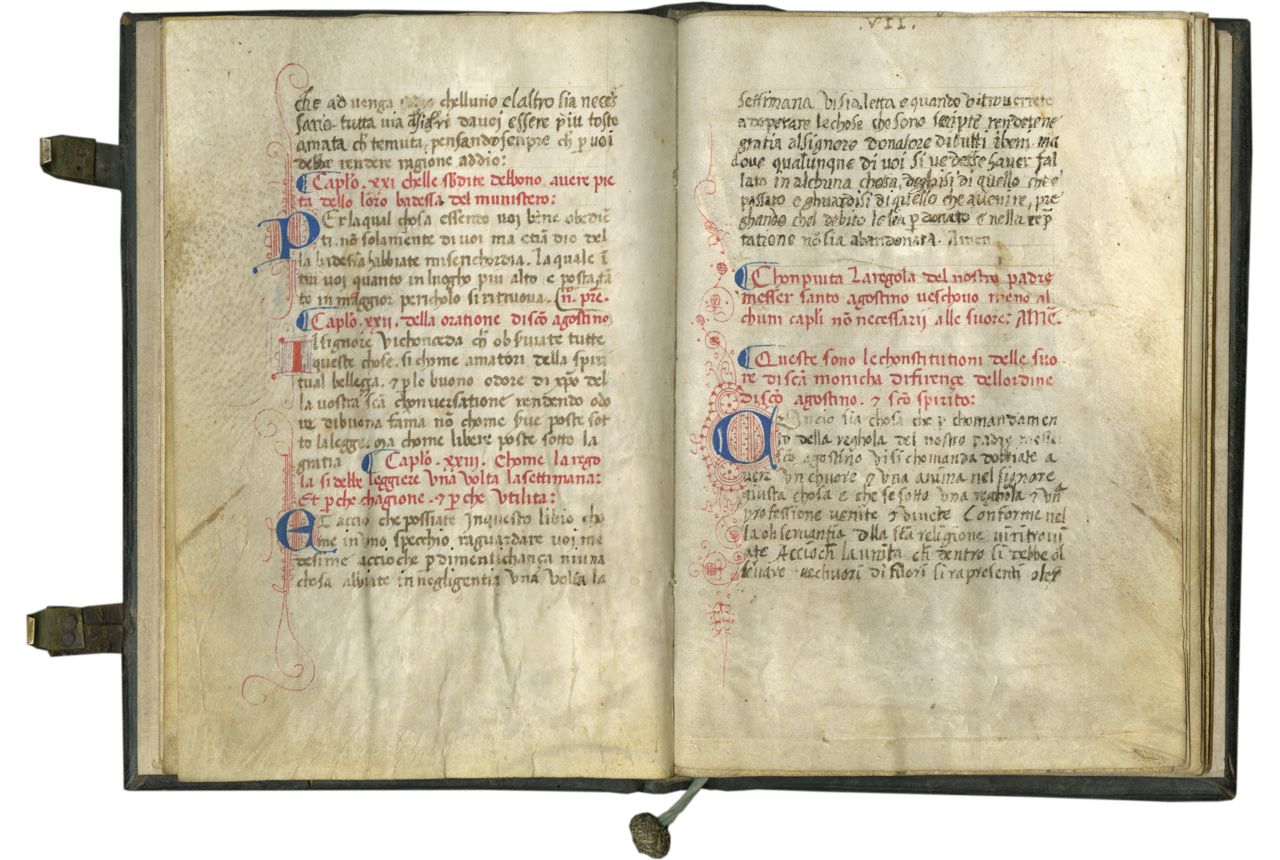 che ad venga chelluno elaltro sia neces
sario. tutta via disideri davoi essere p̄ iu tosto
amata ch̄ temuta, pensando senpre ch̄ p̄ voi
debbe rendere ragione addio:
Caplō. xxi chelle sb̄dite debbono avere pie
ta dello loro badessa del munistero:
PEr laqual chosa essendo voi bene obediē
ti. nō solamente di voi ma etiā dio del
la badessa habbiate misericordia. La quale ī
tra voi quanto in luogho piu alto e posta, tā
to in maggior pericholo si ritruova.
Caplō. xxii. della oratione discō agostino
Il signore vi chonceda ch̄ observiate tutte
queste chose. si chome amatori della spiri
tual bellezza. & p̄ le buono odore di xp̄o del
la vostra scā chonversatione rendendo odo
re dibuona fama nō chome s̄ve poste sot
to lalegge. ma chome libere poste sotto la
gratia Caplō. xxiii. Chome la rego
la si debbe leggiere una volta la settimana:
Et p̄ che chagione. & p̄ che utilita:
ET accio che possiate inquesto libro cho
me in uno specchio raguardare voi me
desime accioche p̄ dimentichanza niuna
chosa abbiate in negligentia una volta la
.VII.
settimana vi sia letta e quando vi troverrete
adoperare le chose che sono scripte rendetene
gratia alsignore donatore di tutti ibeni. ma
dove qualunque di voi si vedesse haver fal
lato in alchuna chosa, dogliasi di quello che e
passato e ghuardisi di quello che a venire, pre
ghando chel debito le sia p̄donato e nella tēp
tatione nō sia abandonata. Amen
Chonpiuta La regola del nostro padre
messer santo agostino veschovo meno al
chuni capli nō necessarii alle suore: AMĒ.
Queste sono le chonstitutioni delle suo
re di scā monicha di firenze dellordine
di scō agostino. & scō spirito:
ANcio sia chosa che p̄ chomandamen
to della reghola del nostro padre messer
scō agostino vi si chomanda dobbiate a
vere un chuore & una anima nel signore
giusta chosa e che se sotto una reghola & unā
professione venite & vivete Conforme nel
la observantia della scā religione vi ritrovi
ate Accioch̄ la unita ch̄ dentro si debbe ol
levare ne chuori di fuori si rapresenti